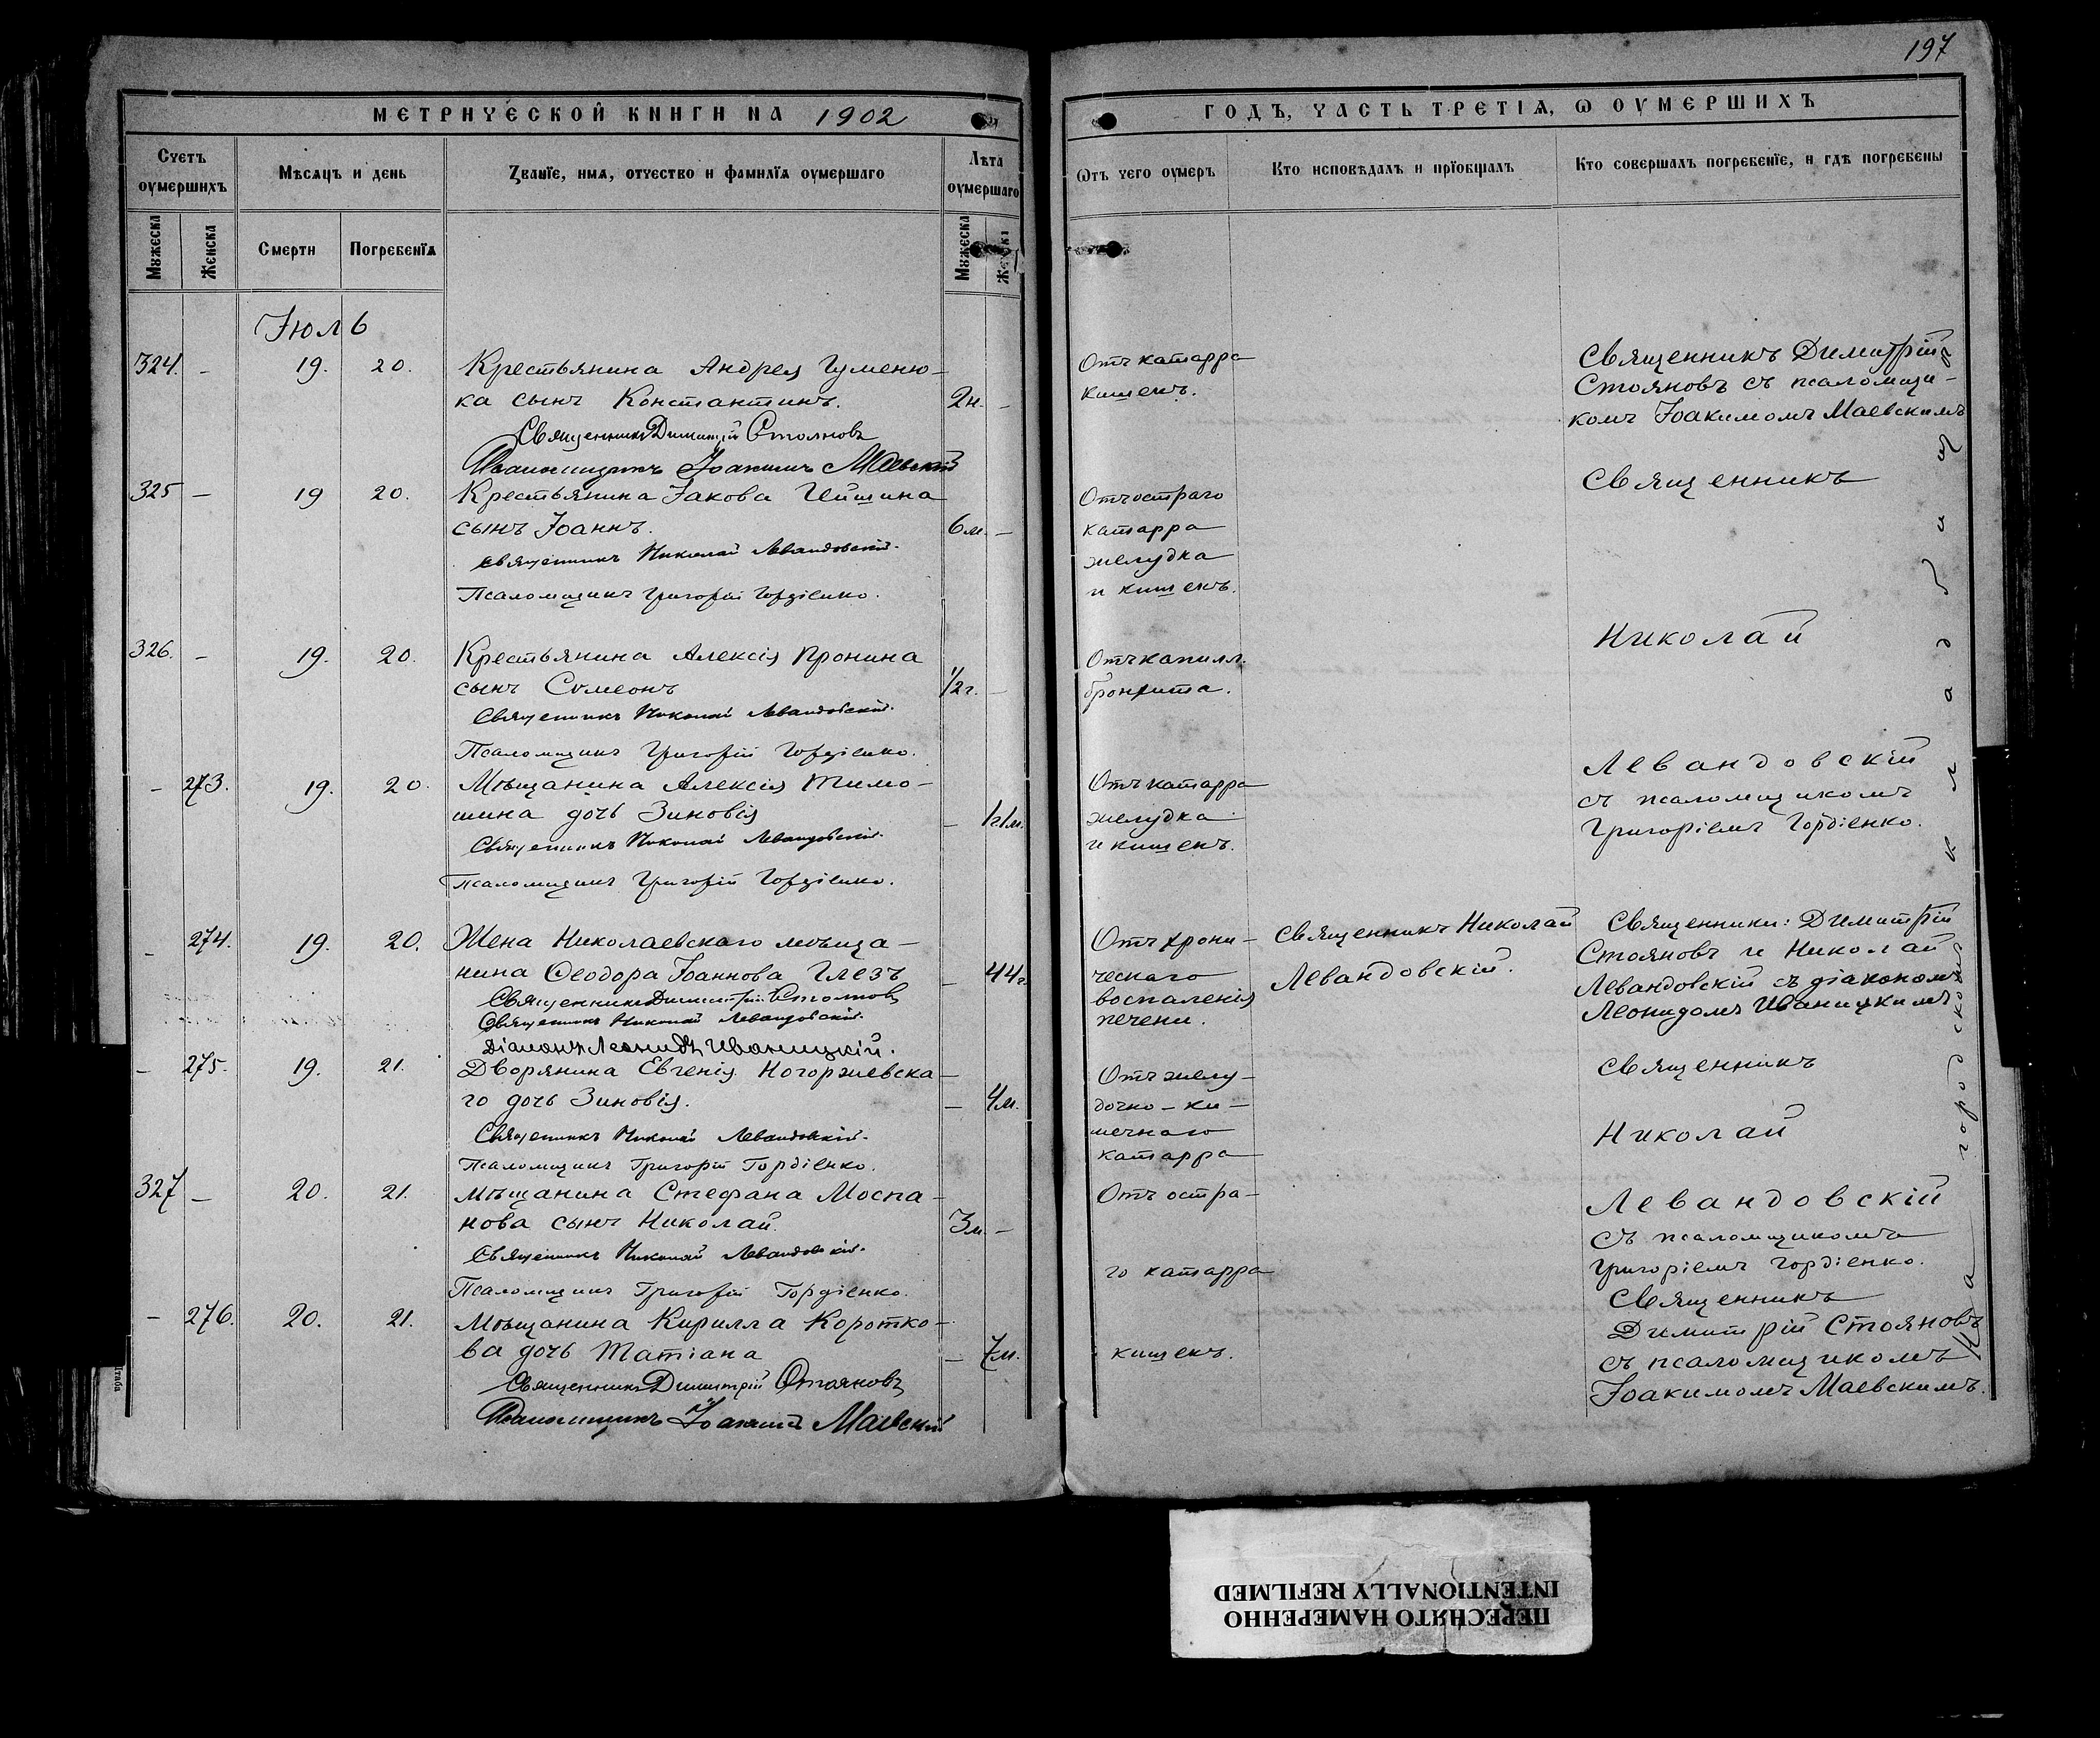 197
МЕТРИЧЕСКОЙ КНИГИ НА 1902
ГОДЪ, ЧАСТЬ ТРЕТІѦ, Ѡ ОУМЕРШИХЪ
Счетъ оумершихъ
Мѣсѧцъ и день
Званїе, имѧ, отчество и фамилїѧ оумершаго
Лѣта оумершаго
Ѿтъ чего оумеръ
Кто исповѣдалъ и прїобщалъ
Кто совершалъ погребенїе, и гдѣ погребены
Мужеска
Женска
Смерти
Погребенїѧ
Мужеска
Іюль
324. - 19. 20. Крестьянина Андрея Гуменю-
ка сынъ Константинъ. 2н. -
Священникъ Димитрій Стояновъ
Псаломщикъ Іоакимъ Маевскій
Отъ катарра
кишекъ.
Священникъ Димитрій
Стояновъ съ псаломщи-
комъ Іоакимомъ Маевскимъ
325 - 19 20. Крестьянина Іакова
сынъ Іоаннъ. 6м. -
Священникъ Николай Левандовскій.
Псаломщикъ Григорій Гордіенко.
Отъ остраго
катарра
желудка
и кишекъ.
Священникъ
326. - 19. 20. Крестьянина Алексія Пронина
сынъ Сѵмеонъ 1/2г. -
Священникъ Николай Левандовскій.
Псаломщикъ Григорій Гордіенко.
Отъ капилл.
бронхита.
Николай
- 273. 19. 20. Мѣщанина Алексія Тимо-
шина дочь Зиновія - 1г.1м.
Священникъ Николай Левандовскій.
Псаломщикъ Григорій Гордіенко.
Отъ катарра
желудка
и кишекъ.
Левандовскій
съ псаломщикомъ
Григоріемъ Гордіенко.
- 274. 19. 20. Жена Николаевскаго мѣща-
нина Ѳеодора Іоаннова Глезъ - 44г.
Священникъ Димитрій Стояновъ
Священникъ Николай Левандовскій.
Діаконъ Леонидъ Иваницкій.
Отъ хрони-
ческаго
воспаленія
печени.
Священникъ Николай
Левандовскій.
Священники: Димитрій
Стояновъ и Николай
Левандовскій съ діакономъ
Леонидомъ Иваницкимъ
- 275. 19. 21. Дворянина Евгенія Ногоржевска-
го дочь Зиновія. - 4м.
Священникъ Николай Левандовскій.
Псаломщикъ Григорій Гордіенко.
Отъ желу-
дочно-ки-
шечнаго
катарра
Священникъ
Николай
327 - 20. 21. Мѣщанина Стефана Моспа-
нова сынъ Николай. 3м. -
Священникъ Николай Левандовскій.
Псаломщикъ Григорій Гордіенко.
Отъ остра-
го катарра
Левандовскій
съ псаломщикомъ
Григоріемъ Гордіенко.
- 276. 20. 21. Мѣщанина Кирилла Коротко-
ва дочь Татіана - 7м.
Священникъ Димитрій Стояновъ
Псаломщикъ Іоакимъ Маевскій
кишекъ.
Священникъ
Димитрій Стояновъ
съ псаломщикомъ
Іоакимомъ Маевскимъ.
На городскомъ кладбищѣ
ПЕРЕСНЯТО НАМЕРЕННО
INTENTIONALLY REFILMED